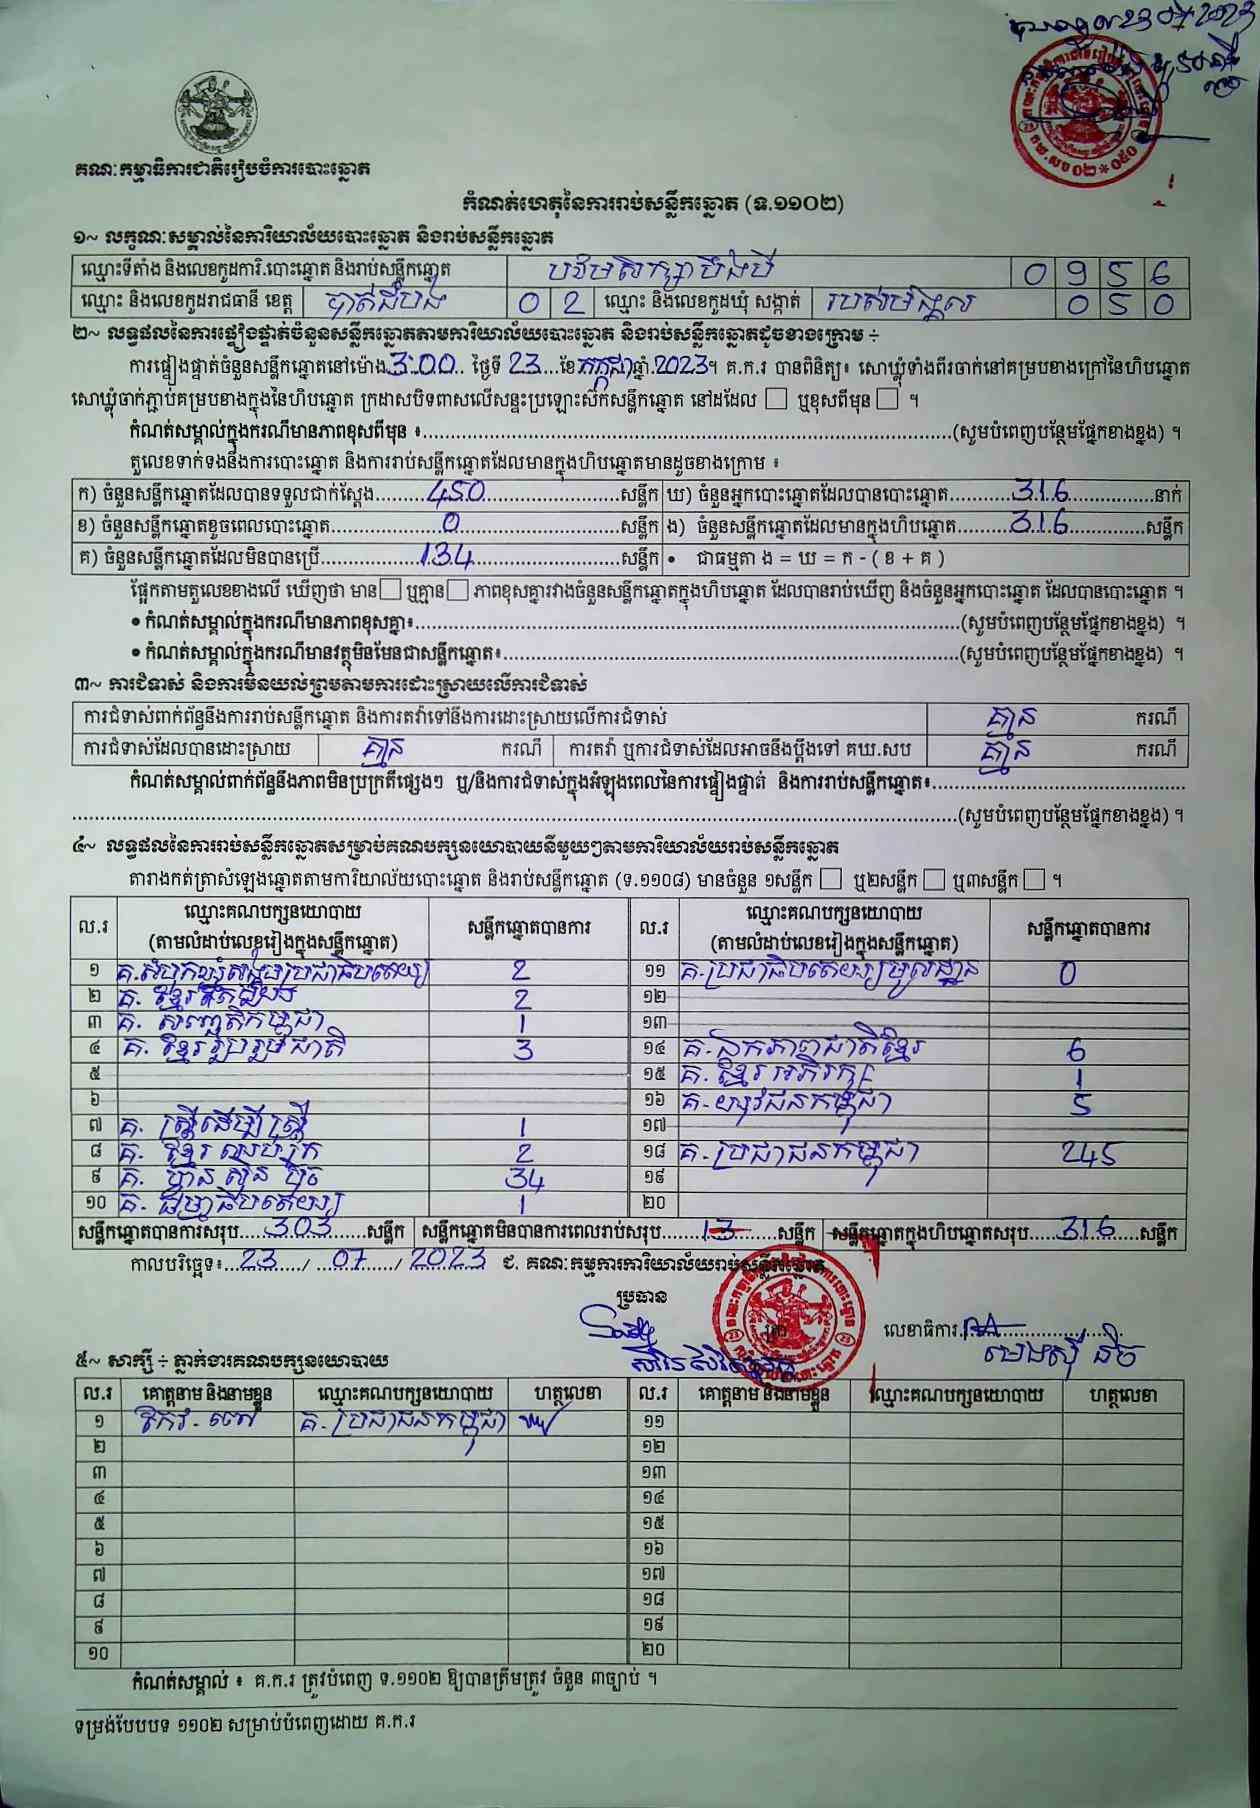 គណៈកម្មាធិការជាតិរៀបចំការបោះឆ្នោត
កំណត់ហេតុនៃការរាប់សន្លឹកឆ្នោត (ទ.១១០២)
១~ លក្ខណៈសម្គាល់នៃការិយាល័យបោះឆ្នោត និងរាប់សន្លឹកឆ្នោត
ឈ្មោះទីតាំង និងលេខកូដការិ.បោះឆ្នោត និងរាប់សន្លឹកឆ្នោត 0 9 5 6
ឈ្មោះ និងលេខកូដរាជធានី ខេត្ត បាត់ដំបង 0 2 ឈ្មោះ និងលេខកូដឃុំ សង្កាត់ 0 5 0
២~ លទ្ធផលនៃការផ្ទៀងផ្ទាត់ចំនួនសន្លឹកឆ្នោតតាមការិយាល័យបោះឆ្នោត និងរាប់សន្លឹកឆ្នោតដូចខាងក្រោម ÷
ការផ្ទៀងផ្ទាត់ចំនួនសន្លឹកឆ្នោតនៅម៉ោង 3:00 ថ្ងៃទី 23 ខែ កក្កដា ឆ្នាំ 2023។ គ.ក.រ បានពិនិត្យ៖ សោឃ្លុំទាំងពីរចាក់នៅគម្របខាងក្រៅនៃហិបឆ្នោត
សោឃ្លុំចាក់ភ្ជាប់គម្របខាងក្នុងនៃហិបឆ្នោត ក្រដាសបិទពាសលើសន្ទះប្រឡោះស៊កសន្លឹកឆ្នោត នៅដដែល ☐ ឬខុសពីមុន ☐ ។
កំណត់សម្គាល់ក្នុងករណីមានភាពខុសពីមុន ៖..........(សូមបំពេញបន្ថែមផ្នែកខាងខ្នង) ។
តួលេខទាក់ទងនឹងការបោះឆ្នោត និងការរាប់សន្លឹកឆ្នោតដែលមានក្នុងហិបឆ្នោតមានដូចខាងក្រោម ៖
ក) ចំនួនសន្លឹកឆ្នោតដែលបានទទួលជាក់ស្តែង 450 សន្លឹក ឃ) ចំនួនអ្នកបោះឆ្នោតដែលបានបោះឆ្នោត 316 នាក់
ខ) ចំនួនសន្លឹកឆ្នោតខូចពេលបោះឆ្នោត 0 សន្លឹក ង) ចំនួនសន្លឹកឆ្នោតដែលមានក្នុងហិបឆ្នោត 316 សន្លឹក
គ) ចំនួនសន្លឹកឆ្នោតដែលមិនបានប្រើ 134 សន្លឹក • ជាធម្មតា ង = ឃ = ក - ( ខ + គ )
ផ្អែកតាមតួលេខខាងលើ ឃើញថា មាន ☐ ឬគ្មាន ☐ ភាពខុសគ្នារវាងចំនួនសន្លឹកឆ្នោតក្នុងហិបឆ្នោត ដែលបានរាប់ឃើញ និងចំនួនអ្នកបោះឆ្នោត ដែលបានបោះឆ្នោត ។
• កំណត់សម្គាល់ក្នុងករណីមានភាពខុសគ្នា៖..........(សូមបំពេញបន្ថែមផ្នែកខាងខ្នង) ។
• កំណត់សម្គាល់ក្នុងករណីមានវត្ថុមិនមែនជាសន្លឹកឆ្នោត៖..........(សូមបំពេញបន្ថែមផ្នែកខាងខ្នង) ។
៣~ ការជំទាស់ និងការមិនយល់ព្រមតាមការដោះស្រាយលើការជំទាស់
ការជំទាស់ពាក់ព័ន្ធនឹងការរាប់សន្លឹកឆ្នោត និងការតវ៉ាទៅនឹងការដោះស្រាយលើការជំទាស់ គ្មាន ករណី
ការជំទាស់ដែលបានដោះស្រាយ គ្មាន ករណី ការតវ៉ា ឬការជំទាស់ដែលអាចនឹងប្តឹងទៅ គឃ.សប គ្មាន ករណី
កំណត់សម្គាល់ពាក់ព័ន្ធនឹងភាពមិនប្រក្រតីផ្សេងៗ ឬ/និងការជំទាស់ក្នុងអំឡុងពេលនៃការផ្ទៀងផ្ទាត់ និងការរាប់សន្លឹកឆ្នោត៖..........
..........(សូមបំពេញបន្ថែមផ្នែកខាងខ្នង) ។
៤~ លទ្ធផលនៃការរាប់សន្លឹកឆ្នោតសម្រាប់គណបក្សនយោបាយនីមួយៗតាមការិយាល័យរាប់សន្លឹកឆ្នោត
តារាងកត់ត្រាសំឡេងឆ្នោតតាមការិយាល័យបោះឆ្នោត និងរាប់សន្លឹកឆ្នោត (ទ.១១០៨) មានចំនួន ១សន្លឹក ☐ ឬ២សន្លឹក ☐ ឬ៣សន្លឹក ☐ ។
ល.រ ឈ្មោះគណបក្សនយោបាយ (តាមលំដាប់លេខរៀងក្នុងសន្លឹកឆ្នោត) សន្លឹកឆ្នោតបានការ ល.រ ឈ្មោះគណបក្សនយោបាយ (តាមលំដាប់លេខរៀងក្នុងសន្លឹកឆ្នោត) សន្លឹកឆ្នោតបានការ
១ គ.សំបុកឃ្មុំសង្គមប្រជាធិបតេយ្យ 2 ១១ គ.ប្រជាធិបតេយ្យមូលដ្ឋាន 0
២ គ. ខ្មែរឯករាជ្យ 2 ១២
៣ គ. សញ្ជាតិកម្ពុជា 1 ១៣
៤ គ. ខ្មែររួបរួមជាតិ 3 ១៤ គ.ឯកភាពជាតិខ្មែរ 6
៥ ១៥ គ. ខ្មែរអភិរក្ស 1
៦ ១៦ គ.យុវជនកម្ពុជា 5
៧ គ. ស្ត្រីដើម្បីស្ត្រី 1 ១៧
៨ គ. ខ្មែរឈប់ក្រ 2 ១៨ គ.ប្រជាជនកម្ពុជា 245
៩ គ. ហ៊្វុនស៊ិនប៉ិច 34 ១៩
១០ គ. ធម្មាធិបតេយ្យ 1 ២០
សន្លឹកឆ្នោតបានការសរុប 303 សន្លឹក សន្លឹកឆ្នោតមិនបានការពេលរាប់សរុប 13 សន្លឹក សន្លឹកឆ្នោតក្នុងហិបឆ្នោតសរុប 316 សន្លឹក
កាលបរិច្ឆេទ៖ 23 / 07 / 2023 ជ. គណៈកម្មការការិយាល័យរាប់សន្លឹកឆ្នោត
ប្រធាន
លេខាធិការ
៥~ សាក្សី ÷ ភ្នាក់ងារគណបក្សនយោបាយ
ល.រ គោត្តនាម និងនាមខ្លួន ឈ្មោះគណបក្សនយោបាយ ហត្ថលេខា ល.រ គោត្តនាម និងនាមខ្លួន ឈ្មោះគណបក្សនយោបាយ ហត្ថលេខា
១ គ.ប្រជាជនកម្ពុជា ១១
២ ១២
៣ ១៣
៤ ១៤
៥ ១៥
៦ ១៦
៧ ១៧
៨ ១៨
៩ ១៩
១០ ២០
កំណត់សម្គាល់ ៖ គ.ក.រ ត្រូវបំពេញ ទ.១១០២ ឱ្យបានត្រឹមត្រូវ ចំនួន ៣ច្បាប់ ។
ទម្រង់បែបបទ ១១០២ សម្រាប់បំពេញដោយ គ.ក.រ